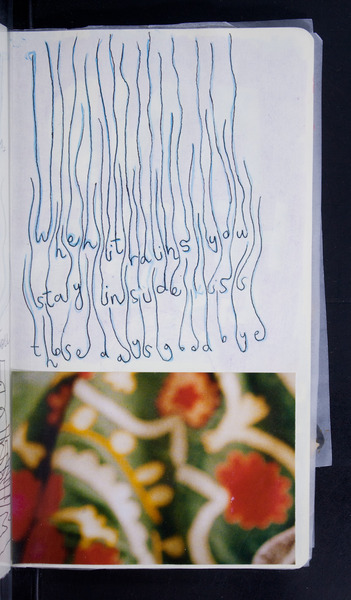 when it rains you
stay inside kiss
those days goodbye